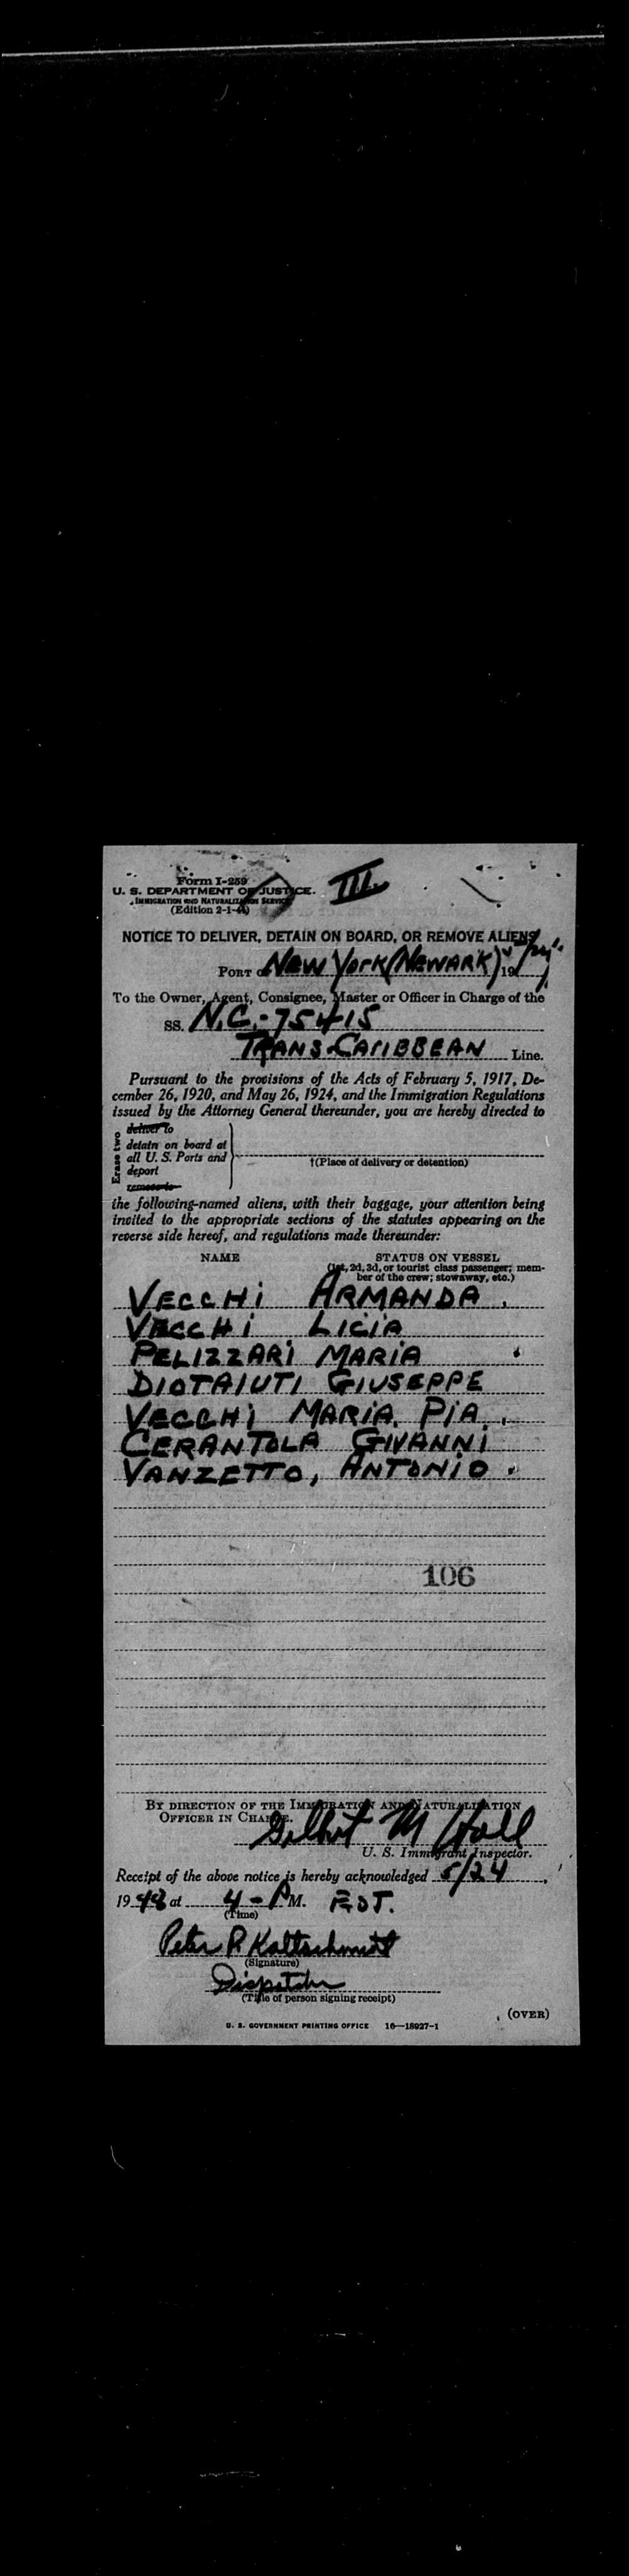 Form I-259
U. S. DEPARTMENT OF JUSTICE.
IMMIGRATION AND NATURALIZATION SERVICE
(Edition 2-1-44)
III
NOTICE TO DELIVER, DETAIN ON BOARD, OR REMOVE ALIENS
PORT OF NEW YORK (NEWARK) 19
To the Owner, Agent, Consignee, Master or Officer in Charge of the
SS. N.C.-75415
TRANS-CARIBBEAN Line.
Pursuant to the provisions of the Acts of February 5, 1917, De-
cember 26, 1920, and May 26, 1924, and the Immigration Regulations
issued by the Attorney General thereunder, you are hereby directed to
Erase two
deliver to
detain on board at
all U. S. Ports and
deport
remove to
†(Place of delivery or detention)
the following-named aliens, with their baggage, your attention being
invited to the appropriate sections of the statutes appearing on the
reverse side hereof, and regulations made thereunder:
NAME STATUS ON VESSEL
(1st, 2d, 3d, or tourist class passenger; mem-
ber of the crew; stowaway, etc.)
VECCHI ARMANDA
VECCHI LICIA
PELIZZARI MARIA
DIOTAIUTI GIUSEPPE
VECCHI MARIA PIA
CERANTOLA GIVANNI
VANZETTO, ANTONIO
106
BY DIRECTION OF THE IMMIGRATION AND NATURALIZATION
OFFICER IN CHARGE.
Gilbert M Hall
U. S. Immigrant Inspector.
Receipt of the above notice is hereby acknowledged 5/24,
1948 at 4-PM. EDT.
(Time)
Peter R Kaltschmitt
(Signature)
Dispatcher
(Title of person signing receipt)
(OVER)
U. S. GOVERNMENT PRINTING OFFICE 16—18927-1